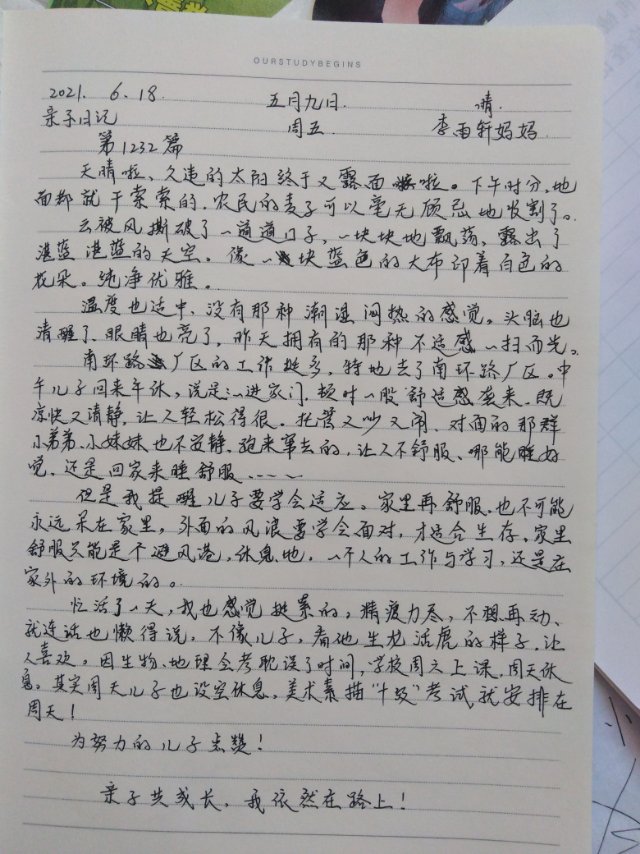 OURSTUDYBEGINS
2021. 6. 18. 五月九日. 晴.
亲子日记 周五 李雨轩妈妈
第1232篇
天晴啦、久违的太阳终于又露面啦。下午时分、地
面都就干索索的、农民的麦子可以毫无顾忌地收割了。
云被风撕破了一道道口子,一块块地飘荡,露出了
湛蓝湛蓝的天空。像一块蓝色的大布印着白色的
花朵。纯净优雅。
温度也适中、没有那种潮湿闷热的感觉。头脑也
清醒了、眼睛也亮了,昨天拥有的那种不适感一扫而光。
南环路厂区的工作挺多,特地去了南环路厂区。中
午儿子回来午休,说是一进家门、顿时一股舒适感袭来、既
凉快又清静,让人轻松得很。托管又吵又闹、对面的那群
小弟弟、小妹妹也不安静,跑来窜去的,让人不舒服、哪能睡好
觉,还是回家来睡舒服……
但是我提醒儿子要学会适应。家里再舒服、也不可能
永远呆在家里,外面的风浪要学会面对,才适合生存。家里
舒服只能是个避风港,休息地,一个人的工作与学习,还是在
家外的环境的。
忙活了一天,我也感觉挺累的,精疲力尽,不想再动、
就连话也懒得说,不像儿子,看他生龙活虎的样子,让
人喜欢。因生物、地理会考耽误了时间,学校周六上课,周天休
息,其实周天儿子也没空休息,美术素描“十级”考试就安排在
周天!
为努力的儿子点赞!
亲子共成长,我依然在路上!